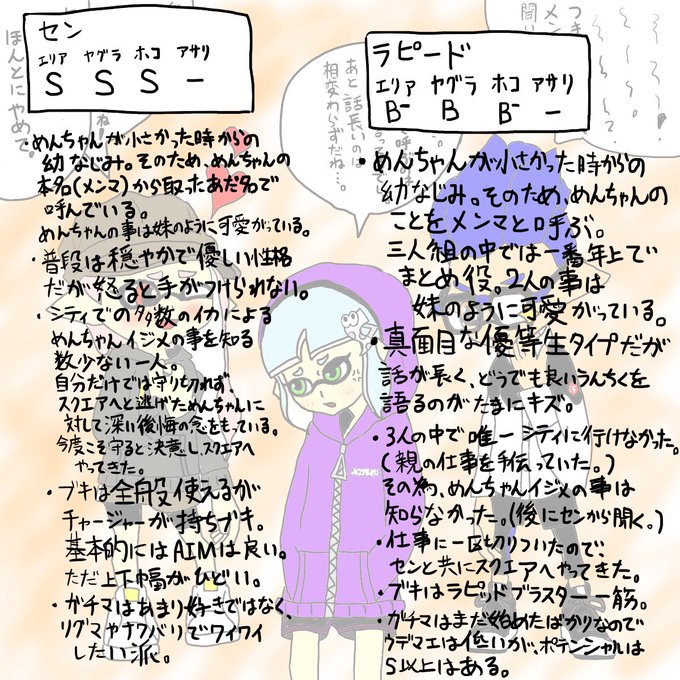 セン
エリア ヤグラ ホコ アサリ
S S S ー
・めんちゃんが小さかった時からの
幼なじみ。そのため、めんちゃんの
本名(メンマ)から取ったあだ名で
呼んでいる。
めんちゃんの事は妹のように可愛がっている。
・普段は穏やかで優しい性格
だが怒ると手がつけられない。
・シティでの多数のイカによる
めんちゃんイジメの事を知る
数少ない一人。
自分だけでは守り切れず、
スクエアへと逃げためんちゃんに
対して深い後悔の念をもっている。
今度こそ守ると決意しスクエアへ
やってきた。
・ブキは全般使えるが
チャージャーが持ちブキ。
基本的にはAIMは良い。
ただ上下幅がひどい。
・ガチマはあまり好きではなく、
リグマやナワバリでワイワイ
したい派。
ラピード
エリア ヤグラ ホコ アサリ
B⁻ B B⁻ ー
・めんちゃんが小さかった時からの
幼なじみ。そのため、めんちゃんの
ことをメンマと呼ぶ。
三人組の中では一番年上で
まとめ役。2人の事は
妹のように可愛がっている。
・真面目な優等生タイプだが
話が長く、どうでも良いうんちくを
語るのがたまにキズ。
・3人の中で唯一シティに行けなかった。
(親の仕事を手伝っていた。)
その為、めんちゃんイジメの事は
知らなかった。(後にセンから聞く。)
・仕事に一区切りついたので、
センと共にスクエアへやってきた。
・ブキはラピッドブラスター一筋。
・ガチマはまだ始めたばかりなので
ウデマエは低いが、ポテンシャルは
S以上はある。
あと話長いのは
相変わらずだね…。
ほんとにやめて。